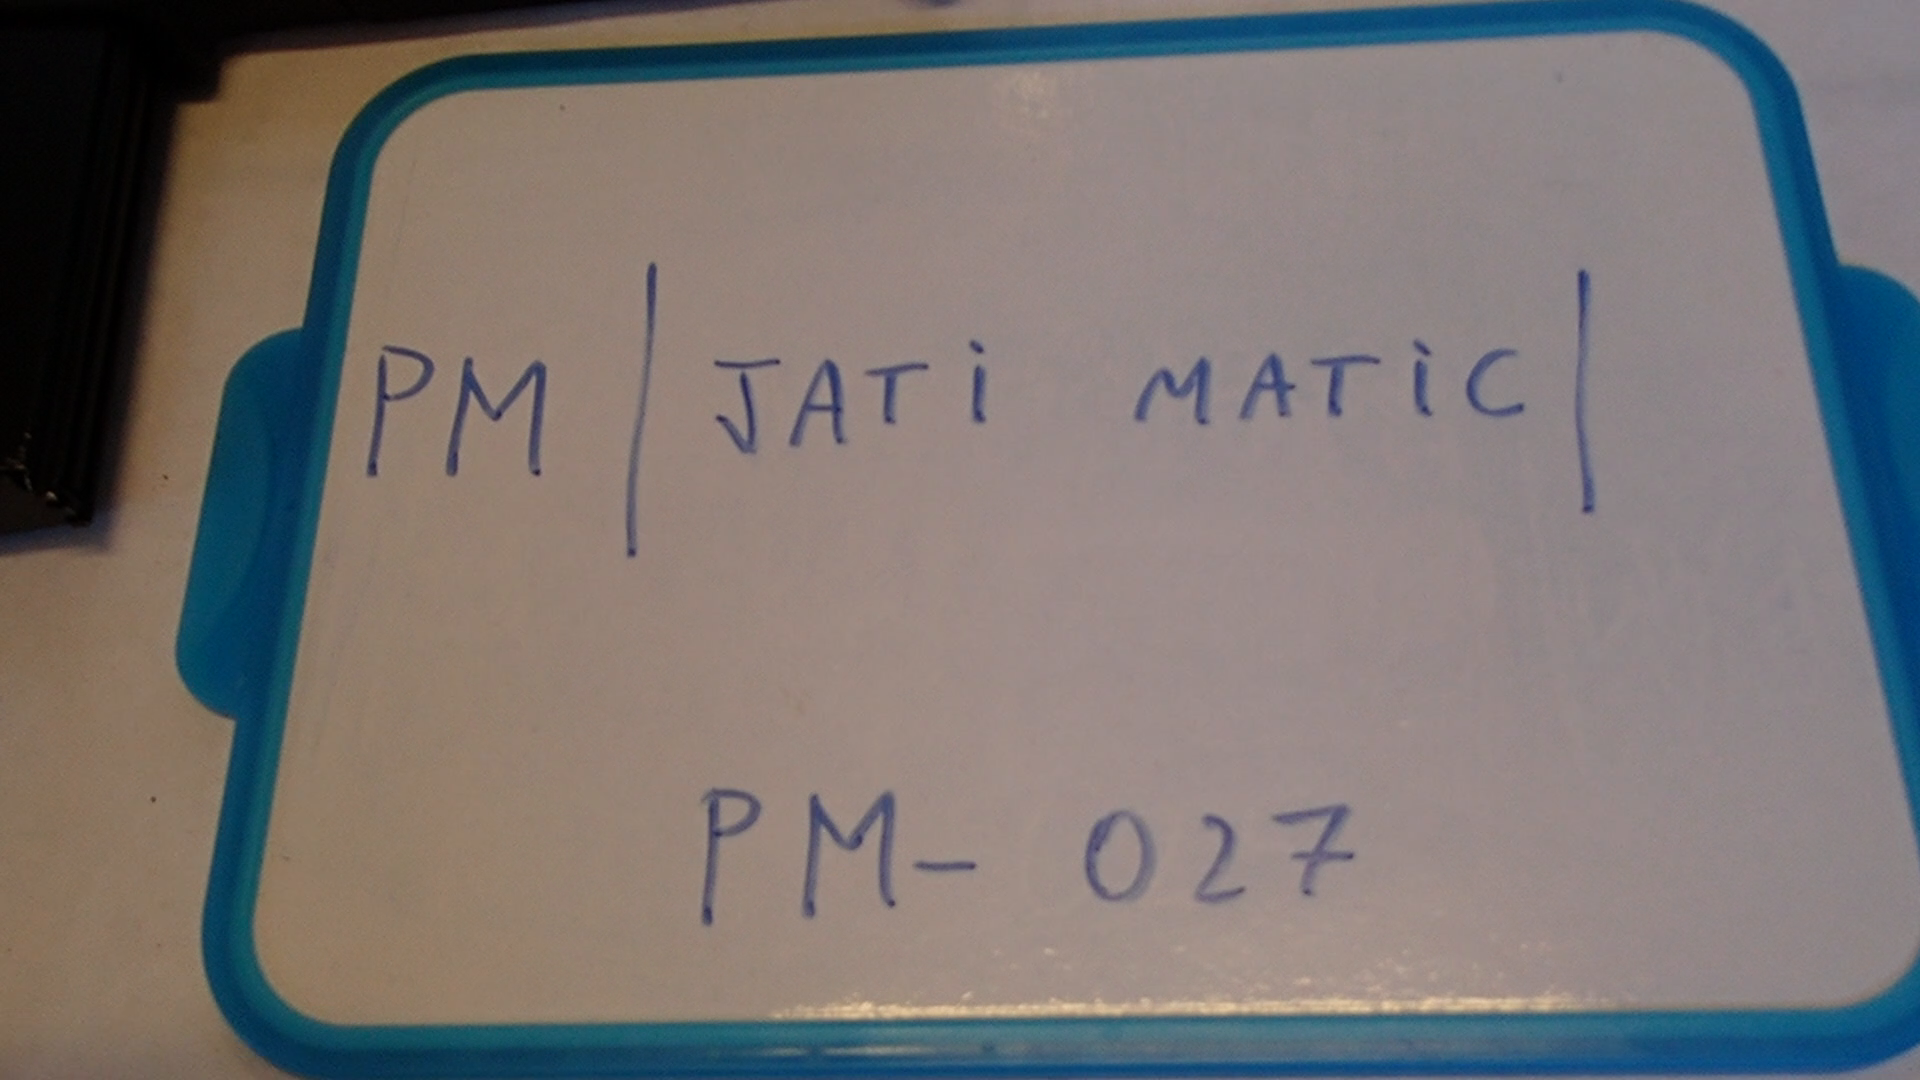 PM | JATi MATiC |
PM- 027